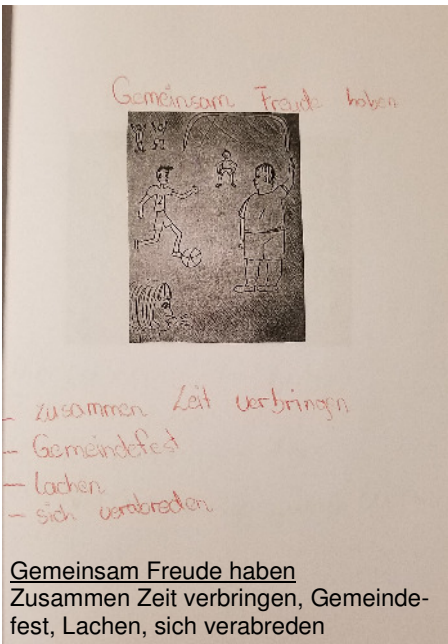 Gemeinsam Freude haben
- zusammen Zeit verbringen
- Gemeindefest
- lachen
- sich verabreden
Gemeinsam Freude haben
Zusammen Zeit verbringen, Gemeinde-
fest, Lachen, sich verabreden